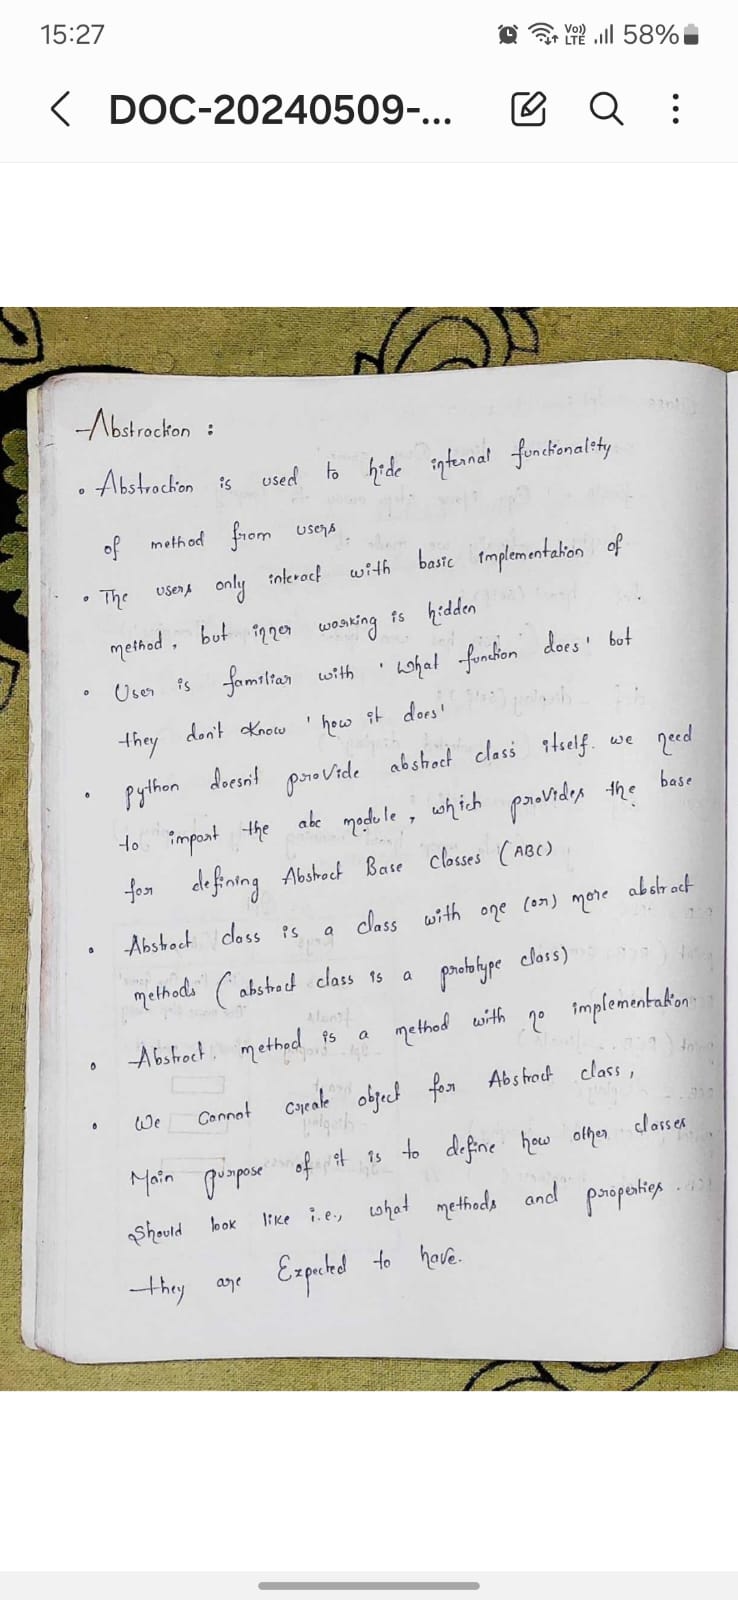 15:27
Vo)) LTE 58%
DOC-20240509-...
Abstraction :
• Abstraction is used to hide internal functionality
of method from users.
• The users only interact with basic implementation of
method, but inner working is hidden
• User is familiar with 'what function does' but
they don't know 'how it does'
• python doesn't provide abstract class itself. we need
to import the abc module, which provides the base
for defining Abstract Base Classes (ABC)
• Abstract class is a class with one (or) more abstract
methods (abstract class is a prototype class)
• Abstract method is a method with no implementation
• We cannot create object for Abstract class,
Main purpose of it is to define how other classes
should look like i.e., what methods and properties.
they are Expected to have.